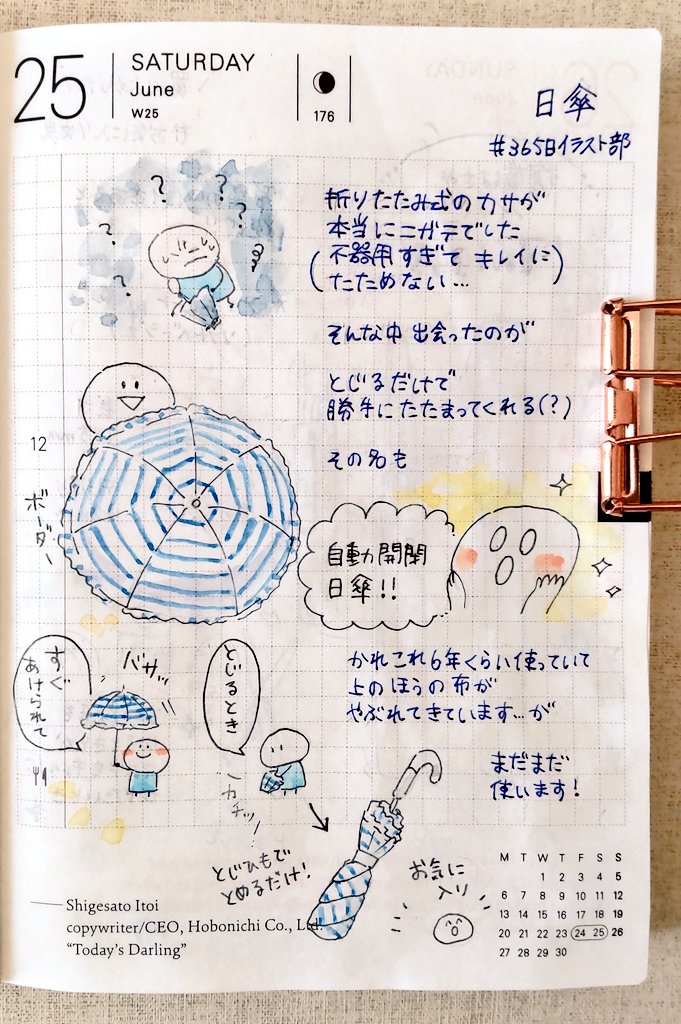 25
SATURDAY
June
W25
176
日傘
#365日イラスト部
折りたたみ式のカサが
本当にニガテでした
(不器用すぎて キレイに
たためない…)
そんな中 出会ったのが
とじるだけで
勝手にたたまってくれる(?)
その名も
? ? ? ? ?
12
ボーダー
自動開閉
日傘!!
かれこれ6年くらい使っていて
上のほうの布が
やぶれてきています…が
まだまだ
使います!
すぐ
あけられて
バサッ
とじるとき
カチッ
とじひもで
とめるだけ!
お気に
入り
M T W T F S S
1 2 3 4 5
6 7 8 9 10 11 12
13 14 15 16 17 18 19
20 21 22 23 24 25 26
27 28 29 30
Shigesato Itoi
copywriter/CEO, Hobonichi Co., Ltd.
“Today’s Darling”